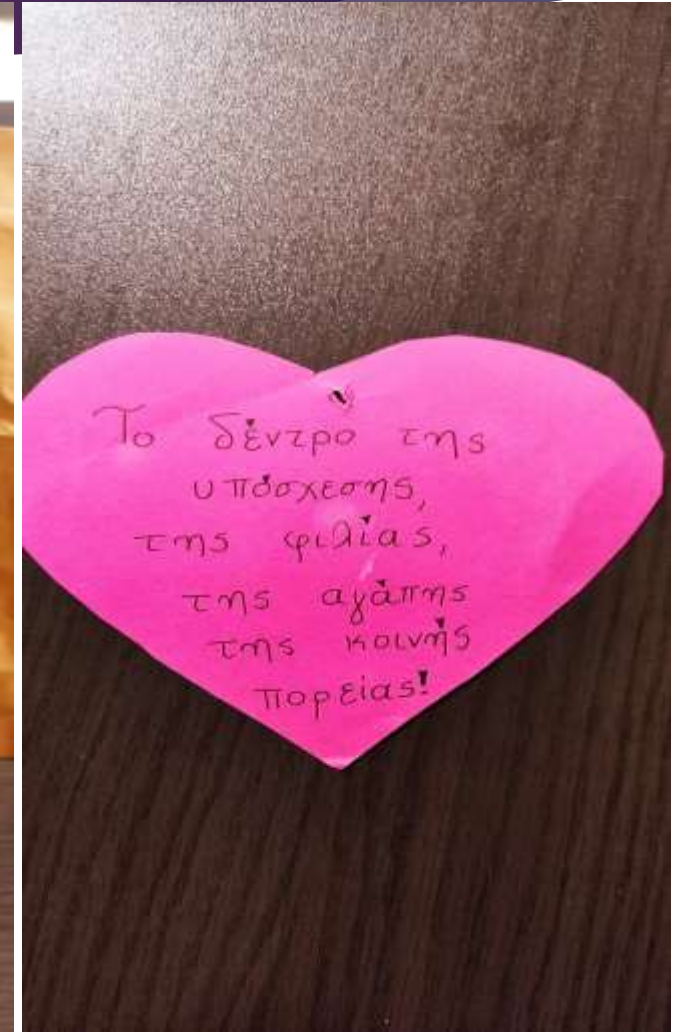 Το δέντρο της
υπόσχεσης,
της φιλίας,
της αγάπης
της κοινής
πορείας!